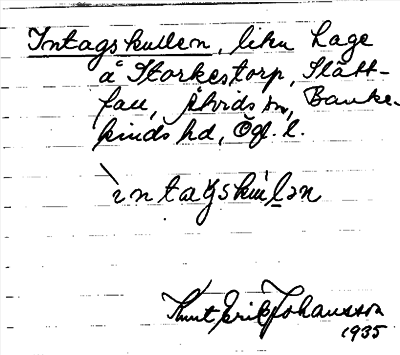 Intagskullen, liten hage
å Storkestorp, Slätt-
fall, Åtvids sn, Banke-
kinds hd, Ögl. l.
ìntagskul̠ən
Knut Erik Johansson
1935